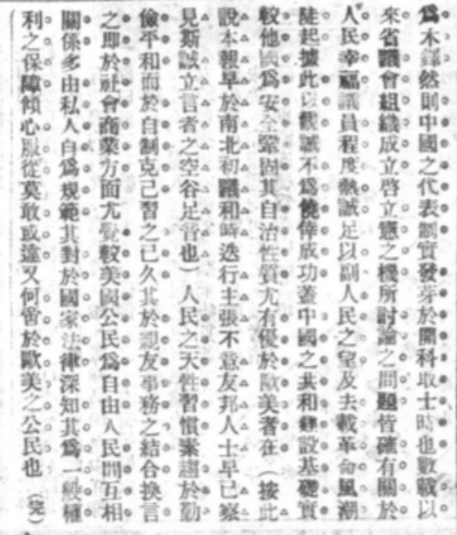 爲木鐸然則中國之代表制實發芽於開科取士時也數載以
來省議會組織成立啓立憲之機所討論之問題皆確有關於
人民幸福議員程度熱誠足以副人民之望及去載革命風潮
陡起據此以觀誠不爲僥倖成功蓋中國之共和建設基礎實
較他國爲安全鞏固其自治性質尤有優於歐美者在（按此
說本報早於南北初議和時迭行主張不意友邦人士早已察
見斯誠立言者之空谷足音也）人民之天性習慣素趨於勤
儉平和而於自制克己習之已久其於親友事務之結合換言
之即於社會商業方面尤覺較美國公民爲自由人民間互相
關係多由私人自爲規範其對於國家法律深知其爲一般權
利之保障傾心服從莫敢或違又何啻於歐美之公民也（完）